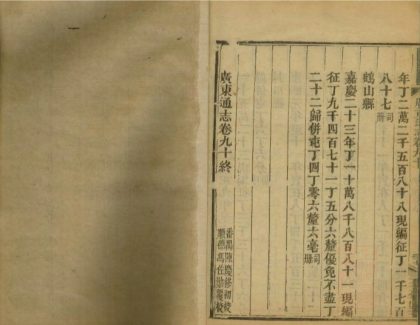 年丁二萬二千五百八十八現編征丁一千七百
八十七司冊
鶴山縣
嘉慶二十三年丁一十萬八千八百八十一現編
征丁九千四百七十一丁五分六釐優免不盡丁
二十二歸併屯丁四丁零六釐六毫司冊
廣東通志卷九十終